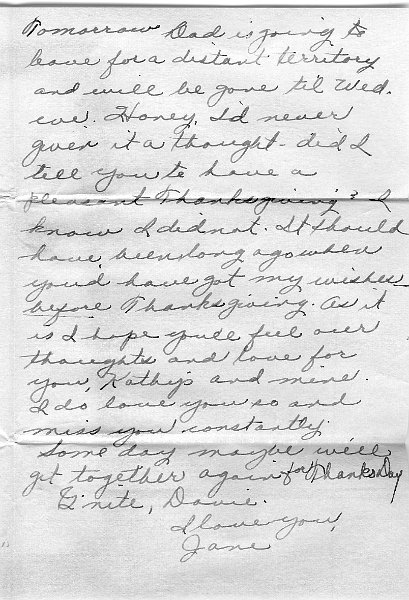 Tomorrow Dad is going to
leave for a distant territory
and will be gone til Wed.
eve. Honey, I'd never
given it a thought - did I
tell you to have a
pleasant Thanksgiving? I
know I did not. It should
have been long ago when
you'd have got my wishes
before Thanksgiving. As it
is I hope you'll feel our
thoughts and love for
you, Kathy's and mine.
I do love you so and
miss you constantly.
Some day maybe we'll
get together again for Thanks Day
G'nite, Davie.
I love you,
Jane